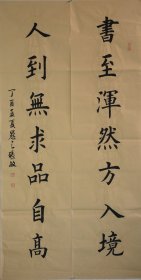 書至渾然方入境
人到無求品自高
丁酉孟夏